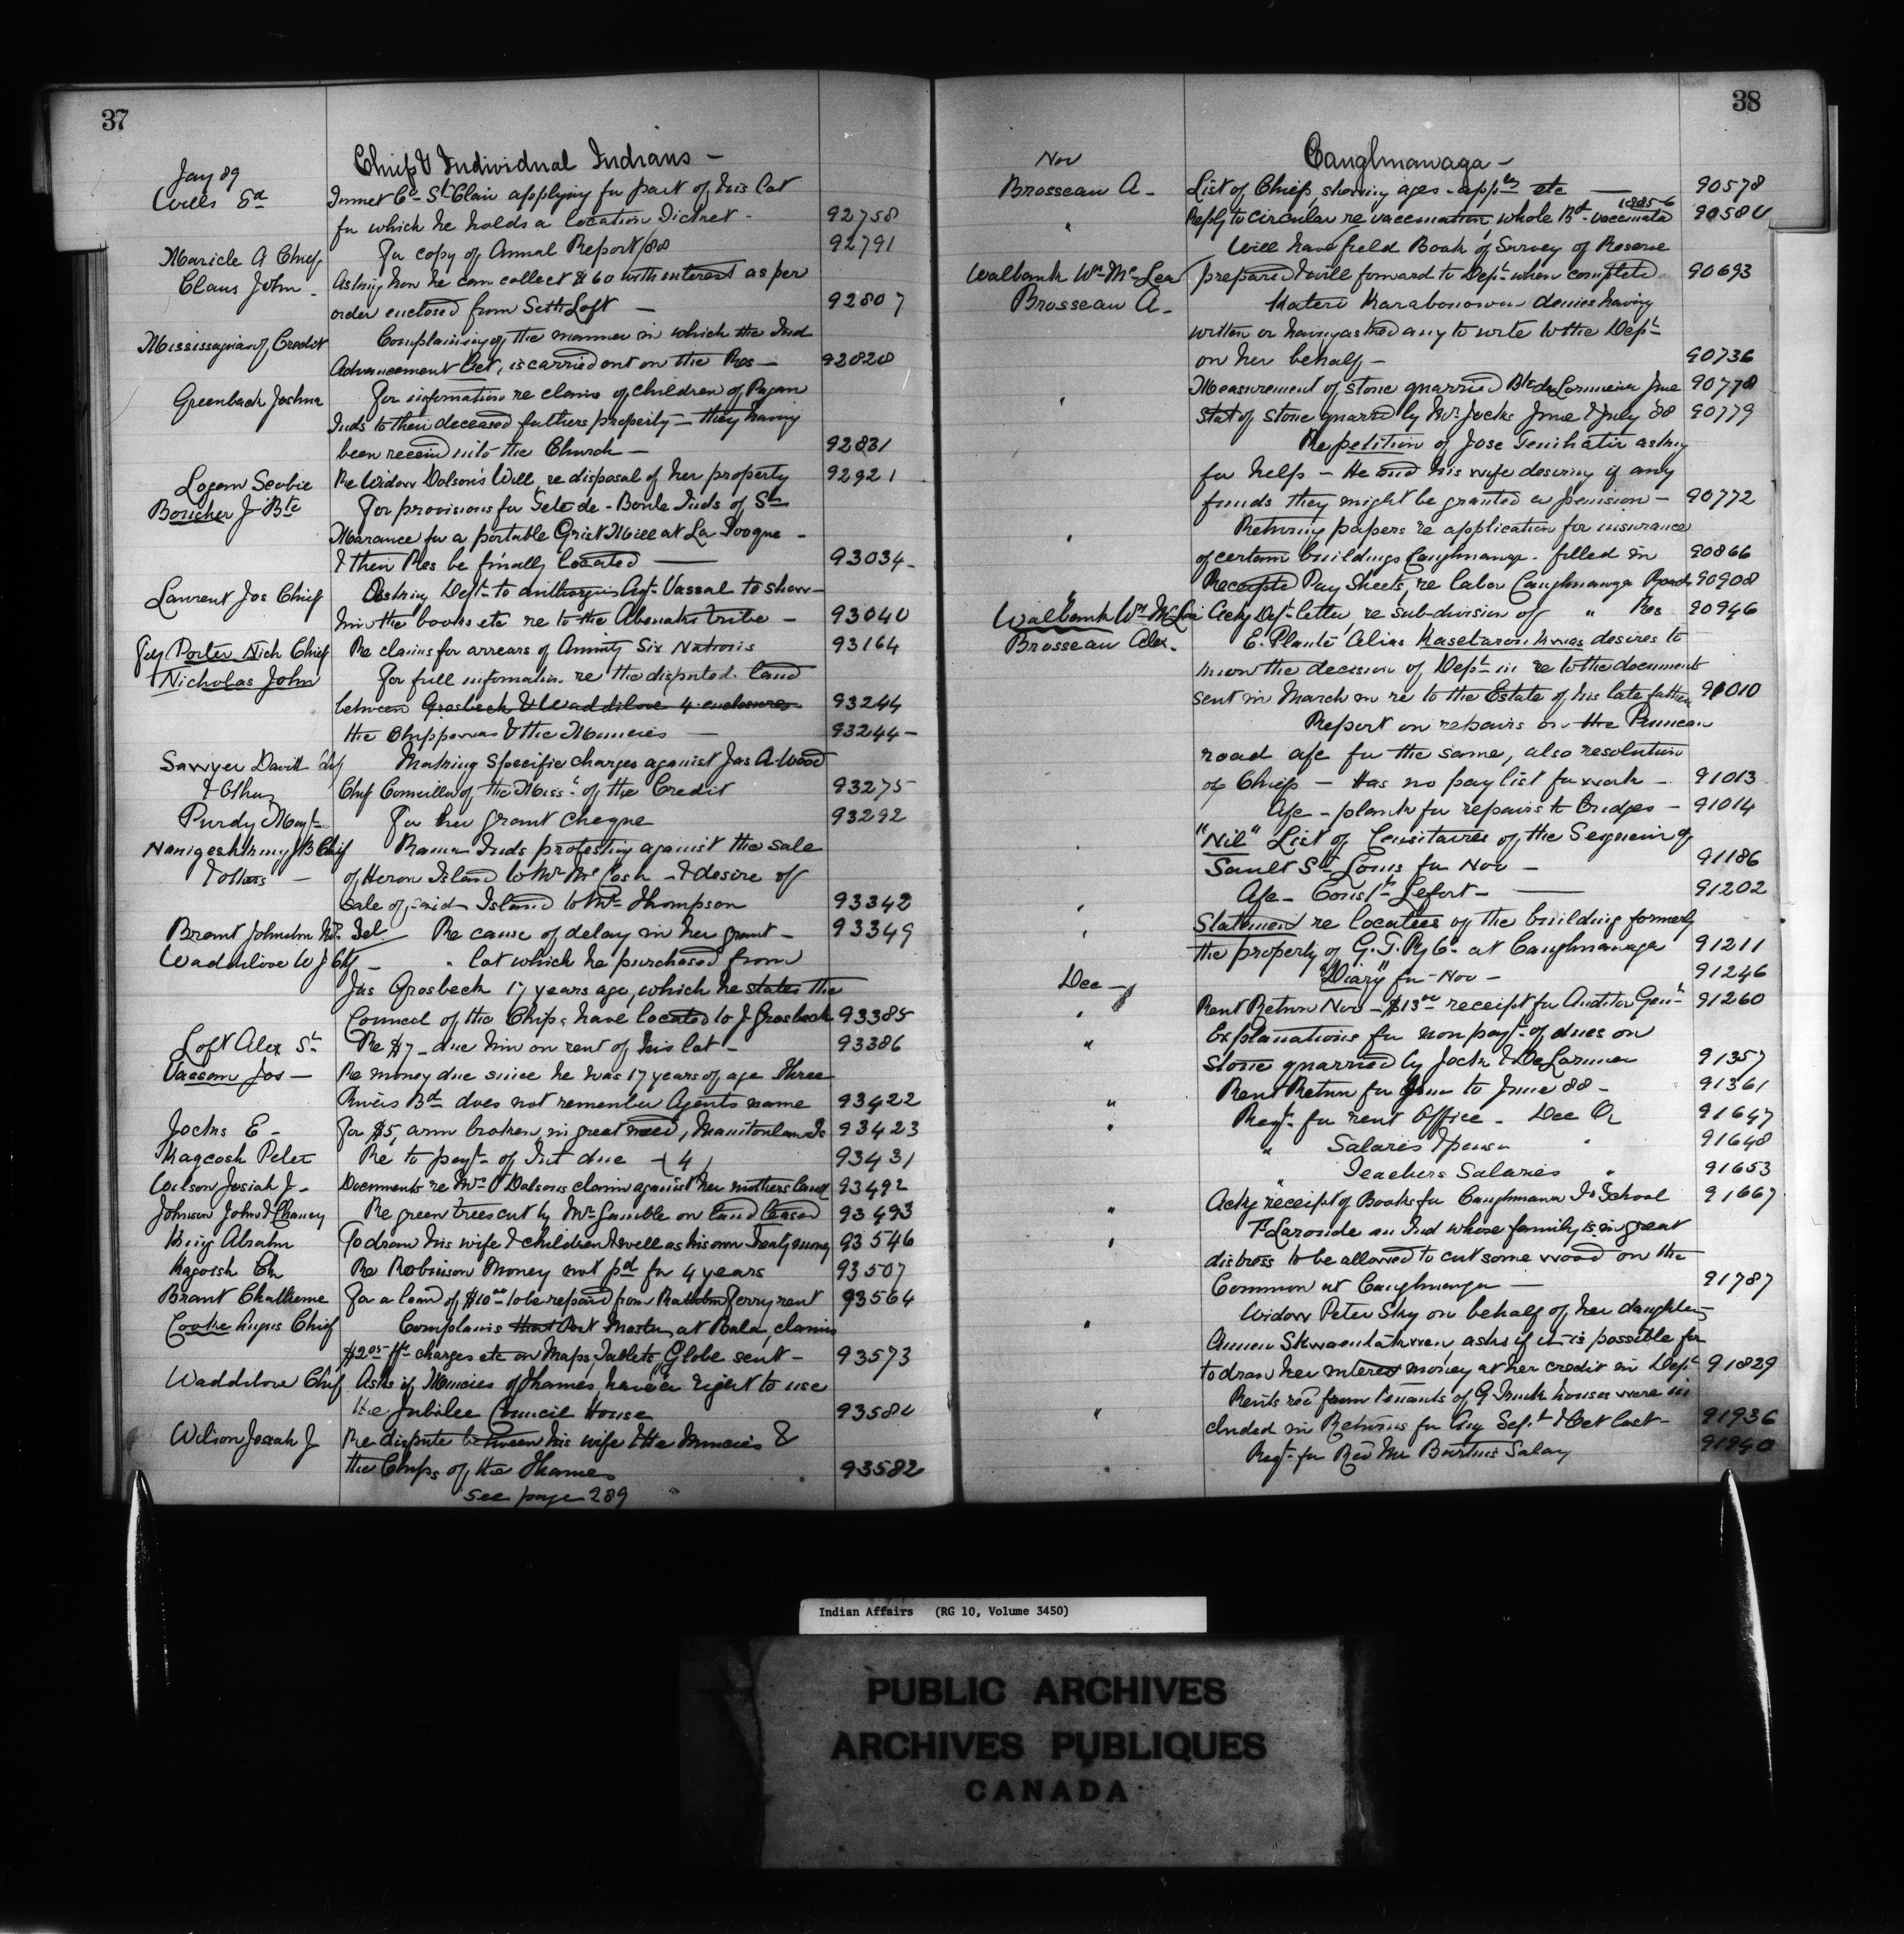 37
Chiefs & Individual Indians -
Jany 89
Wells Ed
Inmet Co St Clair applying for part of his lot
for which he holds a location Ticket - 92758
Maricle A Chief For copy of Annual Report/88 92791
Claus John - Asking how he can collect $60 with interest as per
order enclosed from Seth Loft - 92807
Mississaguas of Credit Complaining of the manner in which the Ind
Advancement Act, is carried out on the Res - 92828
Greenback Joshua For information re claims of children of Pagan
Inds to their deceased fathers property - they having
been received into the Church - 92831
Logan Scobie Re Widow Dolson's Will, re disposal of her property 92921
Boucher J Bte For provisions for Tete de - Boule Inds of St
Maurance for a portable Grist Mill at La Tooque -
& their Res be finally located - 93034-
Laurent Jos Chief Desiring Dept to authorize Agt Vassal to show
him the books etc re to the Abenakis tribe - 93040
Porter Nich Chief Re claims for arrears of Annuity Six Nations 93164
Nicholas John For full information re the disputed land
between Grosbeck & Waddilove 4 enclosures 93244
the Chippewas & the Muncies - 93244-
Sawyer David Chf Making Specific charges against Jas A Wood
& Others Chief Councillor of the Miss's of the Credit 93275
Purdy Mayt - For her grant cheque 93292
Nanigeshkung J B Chief Rama Inds protesting against the sale
& others - of Heron Island to Mr McCosh - & desire of
Sale of said Island to Mr Thompson 93342
Brant Johnston Mrs Isl - Re cause of delay in her grant - 93349
Waddilove W J Chf - " lot which he purchased from
Jas Grosbeck 17 years ago, which he states the
Council of the Chips have located to J Grosbeck 93385
Loft Alex Sr Re $7 - due him on rent of his lot - 93386
Vassom Jos - Re money due since he was 17 years of age Three
Rivers Bd does not remember Agents name 93422
Jocks E - For $5, arm broken, in great need, Manitoulin Is 93423
Kagcosh Peter Re to payt of Int due (4) 93431
Wilson Josiah J - Documents re Mrs Dolsons claim against her mothers land 93492
Johnson John & Chancy Re green trees cut by Mr Gamble on land leased 93493
King Abrahm To draw his wife & children & well as his own Treaty money 93546
Kagoish Ch Re Robinson Money not pd for 4 years 93507
Brant Chatherine For a loan of $10.00 to be repaid from Ferry rent 93564
Cooke Angus Chief Complains that Post Master, at Bala, claims
$2.05 frt charges etc on Maps Tablets, Globe sent - 93573
Waddilove Chief Asks if Muncies of Thames, have a right to use
the Jubilee Council House 93580
Wilson Josiah J Re dispute between his wife & the Muncies &
the Chips of the Thames 93582
See page 289
38
Nov Caughnawaga -
Brosseau A - List of Chiefs, showing ages - appts etc - 90578
1885-6
" Reply to circular re vaccination, whole Bd vaccinated 90580
Will have field Book of Survey of Reserve
Walbank Wm McLea prepared & will forward to Dept when completed 90693
Brosseau A - Kateri Karabonowa denies having
written or having asked any to write to the Dept
on her behalf - 90736
Measurement of stone quarried Bte deLormier June 90778
" Stat of stone quarrd by Mr Jocks June & July 88 90779
Re petition of Jose asking
for help - He and his wife desiring if any
funds they might be granted a pension - 90772
Returning papers re application for insurance
" of certain buildings Caughnawaga - filled in 90866
Receipted Pay Sheets, re labor Caughnawaga Roads 90908
Walbank Wm McLea Ackg Dept letter, re sub-division of " Res 90946
Brosseau Alex - E. Planté Alias desires to
know the decision of Dept in re to the documents
sent in March in re to the Estate of his late father 91010
Report on repairs on the Pruneau
road afc for the same, also resolution
of Chiefs - Has no pay list for work - 91013
Afc - plank for repairs to bridges - 91014
" "Nil" List of Censitaires of the Seigneury of
Sault St Louis for Nov - 91186
" Afc - Const Lefort - 91202
" Statement re locatees of the building formerly
the property of G.T. Ry Co at Caughnawaga 91211
Dec - "Diary" for Nov - 91246
" Rent Return Nov - $13.00 receipt for Auditor Genl 91260
" Explanations for non payt of dues on
Stone quarried by Jocks & DeLormier 91357
Rent Return for Jan to June 88 - 91361
" Reqn for rent Office - Dec Qr 91647
" " Salaries Xpenses " 91648
Teachers Salaries " 91653
" Ackg receipt of Books for Caughnawa In School 91667
" F. Laronde an Ind whose family is in great
distress to be allowed to cut some wood on the
Common at Caughnawaga - 91787
Widow Peter Sky on behalf of her daughter
" asks if it is possible for
to draw her interest money at her credit in Dept 91829
Rents recd from tenants of G. Trunk houses were in
" cluded in Returns for Aug Sept & Oct last - 91936
Reqn for Rev Mr Burtins Salary 91940
Indian Affairs (RG 10, Volume 3450)
PUBLIC ARCHIVES
ARCHIVES PUBLIQUES
CANADA